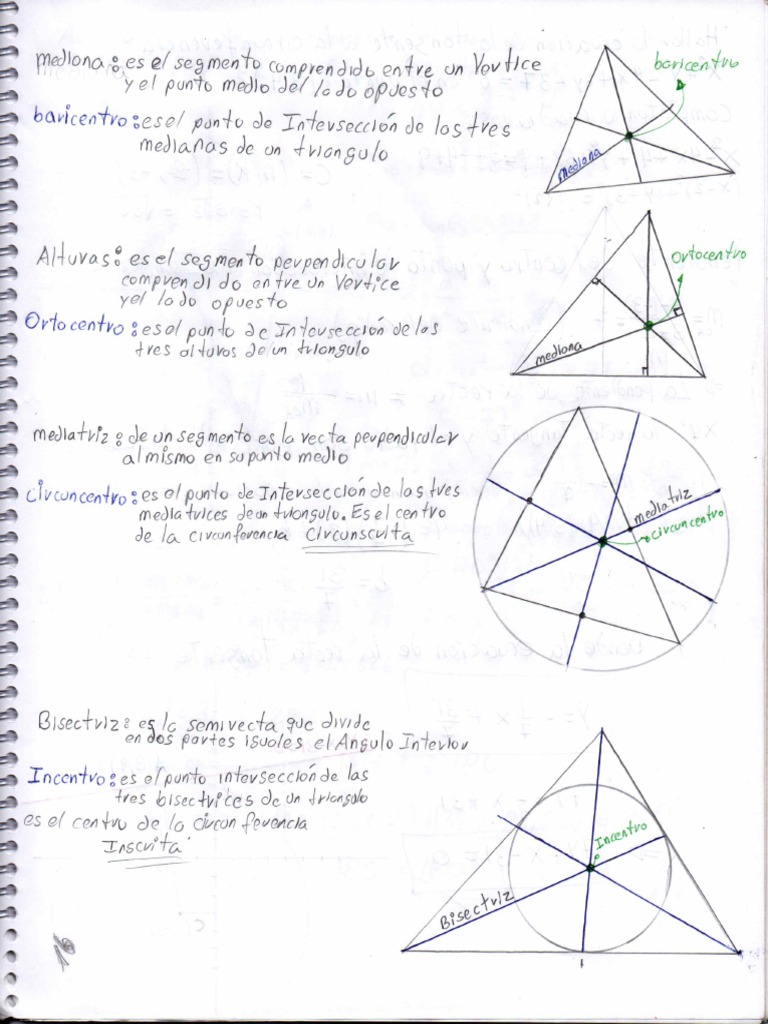 mediana: es el segmento comprendido entre un Vertice
y el punto medio del lado opuesto
baricentro: es el punto de Intersección de las tres
medianas de un triangulo
baricentro
mediana
Alturas: es el segmento perpendicular
comprendido entre un Vertice
y el lado opuesto
Ortocentro: es el punto de Intersección de las
tres alturas de un triangulo
Ortocentro
mediana
mediatriz: de un segmento es la recta perpendicular
al mismo en su punto medio
circuncentro: es el punto de Intersección de las tres
mediatrices de un triangulo. Es el centro
de la circunferencia Circunscrita
mediatriz
circuncentro
Bisectriz: es la semirecta que divide
en dos partes iguales el Angulo Interior
Incentro: es el punto intersección de las
tres bisectrices de un triangulo
es el centro de la circunferencia
Inscrita
Incentro
Bisectriz
16